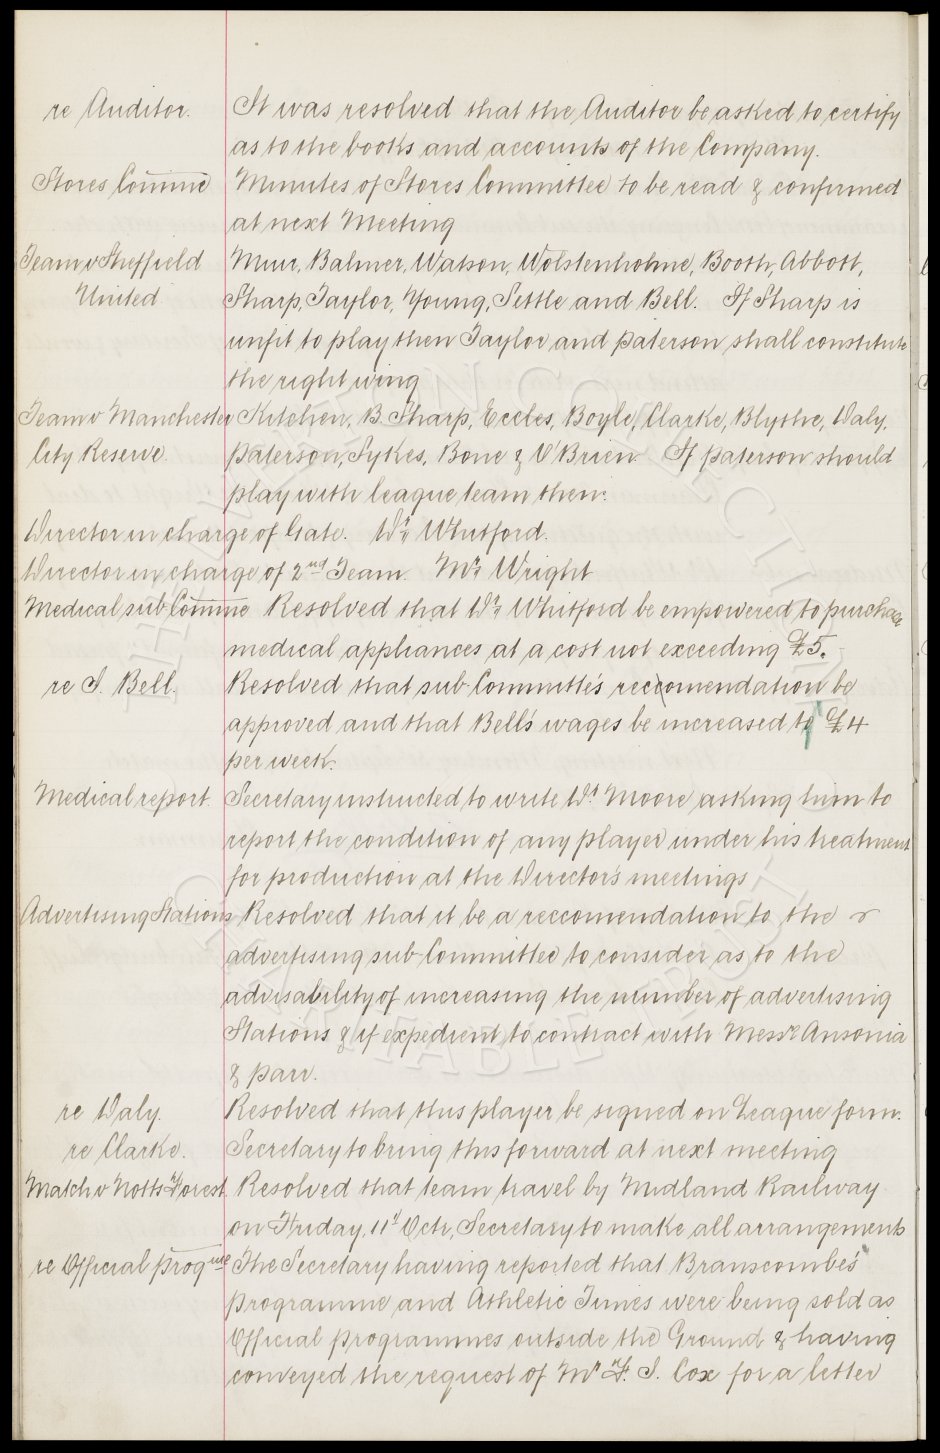 re Auditor. It was resolved that the Auditor be asked to certify
as to the books and accounts of the Company.
Stores Comme Minutes of Stores Committee to be read & confirmed
at next Meeting
Team v Sheffield Muir, Balmer, Watson, Wolstenholme, Booth, Abbott,
United Sharp, Taylor, Young, Settle and Bell. If Sharp is
unfit to play then Taylor and Paterson shall constitute
the right wing
Team v Manchester Kitchen, B. Sharp, Eccles, Boyle, Clarke, Blythe, Daly,
City Reserve. Paterson, Sykes, Bone & O'Brien If Paterson should
play with league team then.
Director in charge of Gate. Dr. Whitford.
Director in charge of 2nd Team. Mr. Wright
Medical sub Comme Resolved that Dr. Whitford be empowered to purchase
medical appliances at a cost not exceeding £5.
re J. Bell. Resolved that sub-Committe's reccomendation be
approved and that Bell's wages be increased to £4
per week.
Medical report. Secretary instructed to write Dr Moore asking him to
report the condition of any player under his treatment
for production at the Director's meetings
Advertising Stations Resolved that it be a reccomendation to the
advertising sub-Committee to consider as to the
advisability of increasing the number of advertising
Stations & if expedient to contract with Messrs Ansonia
& Parr.
re Daly. Resolved that this player be signed on League form.
re Clarke. Secretary to bring this forward at next meeting
Match v Notts Forest Resolved that team travel by Midland Railway
on Friday, 11th Octr, Secretary to make all arrangements
re Official Progme The Secretary having reported that Branscombe's
Programme and Athletic Times were being sold as
Official programmes outside the Ground & having
conveyed the request of Mr F. J. Cox for a letter
THE EVERTON COLLECTION
CHARITABLE TRUST